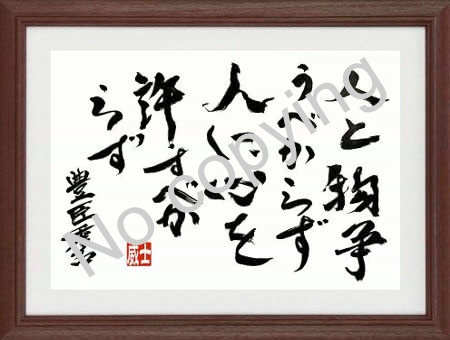 人と物争
うべからず
人に心を
許すべか
らず
豊臣秀吉
士威
No copying